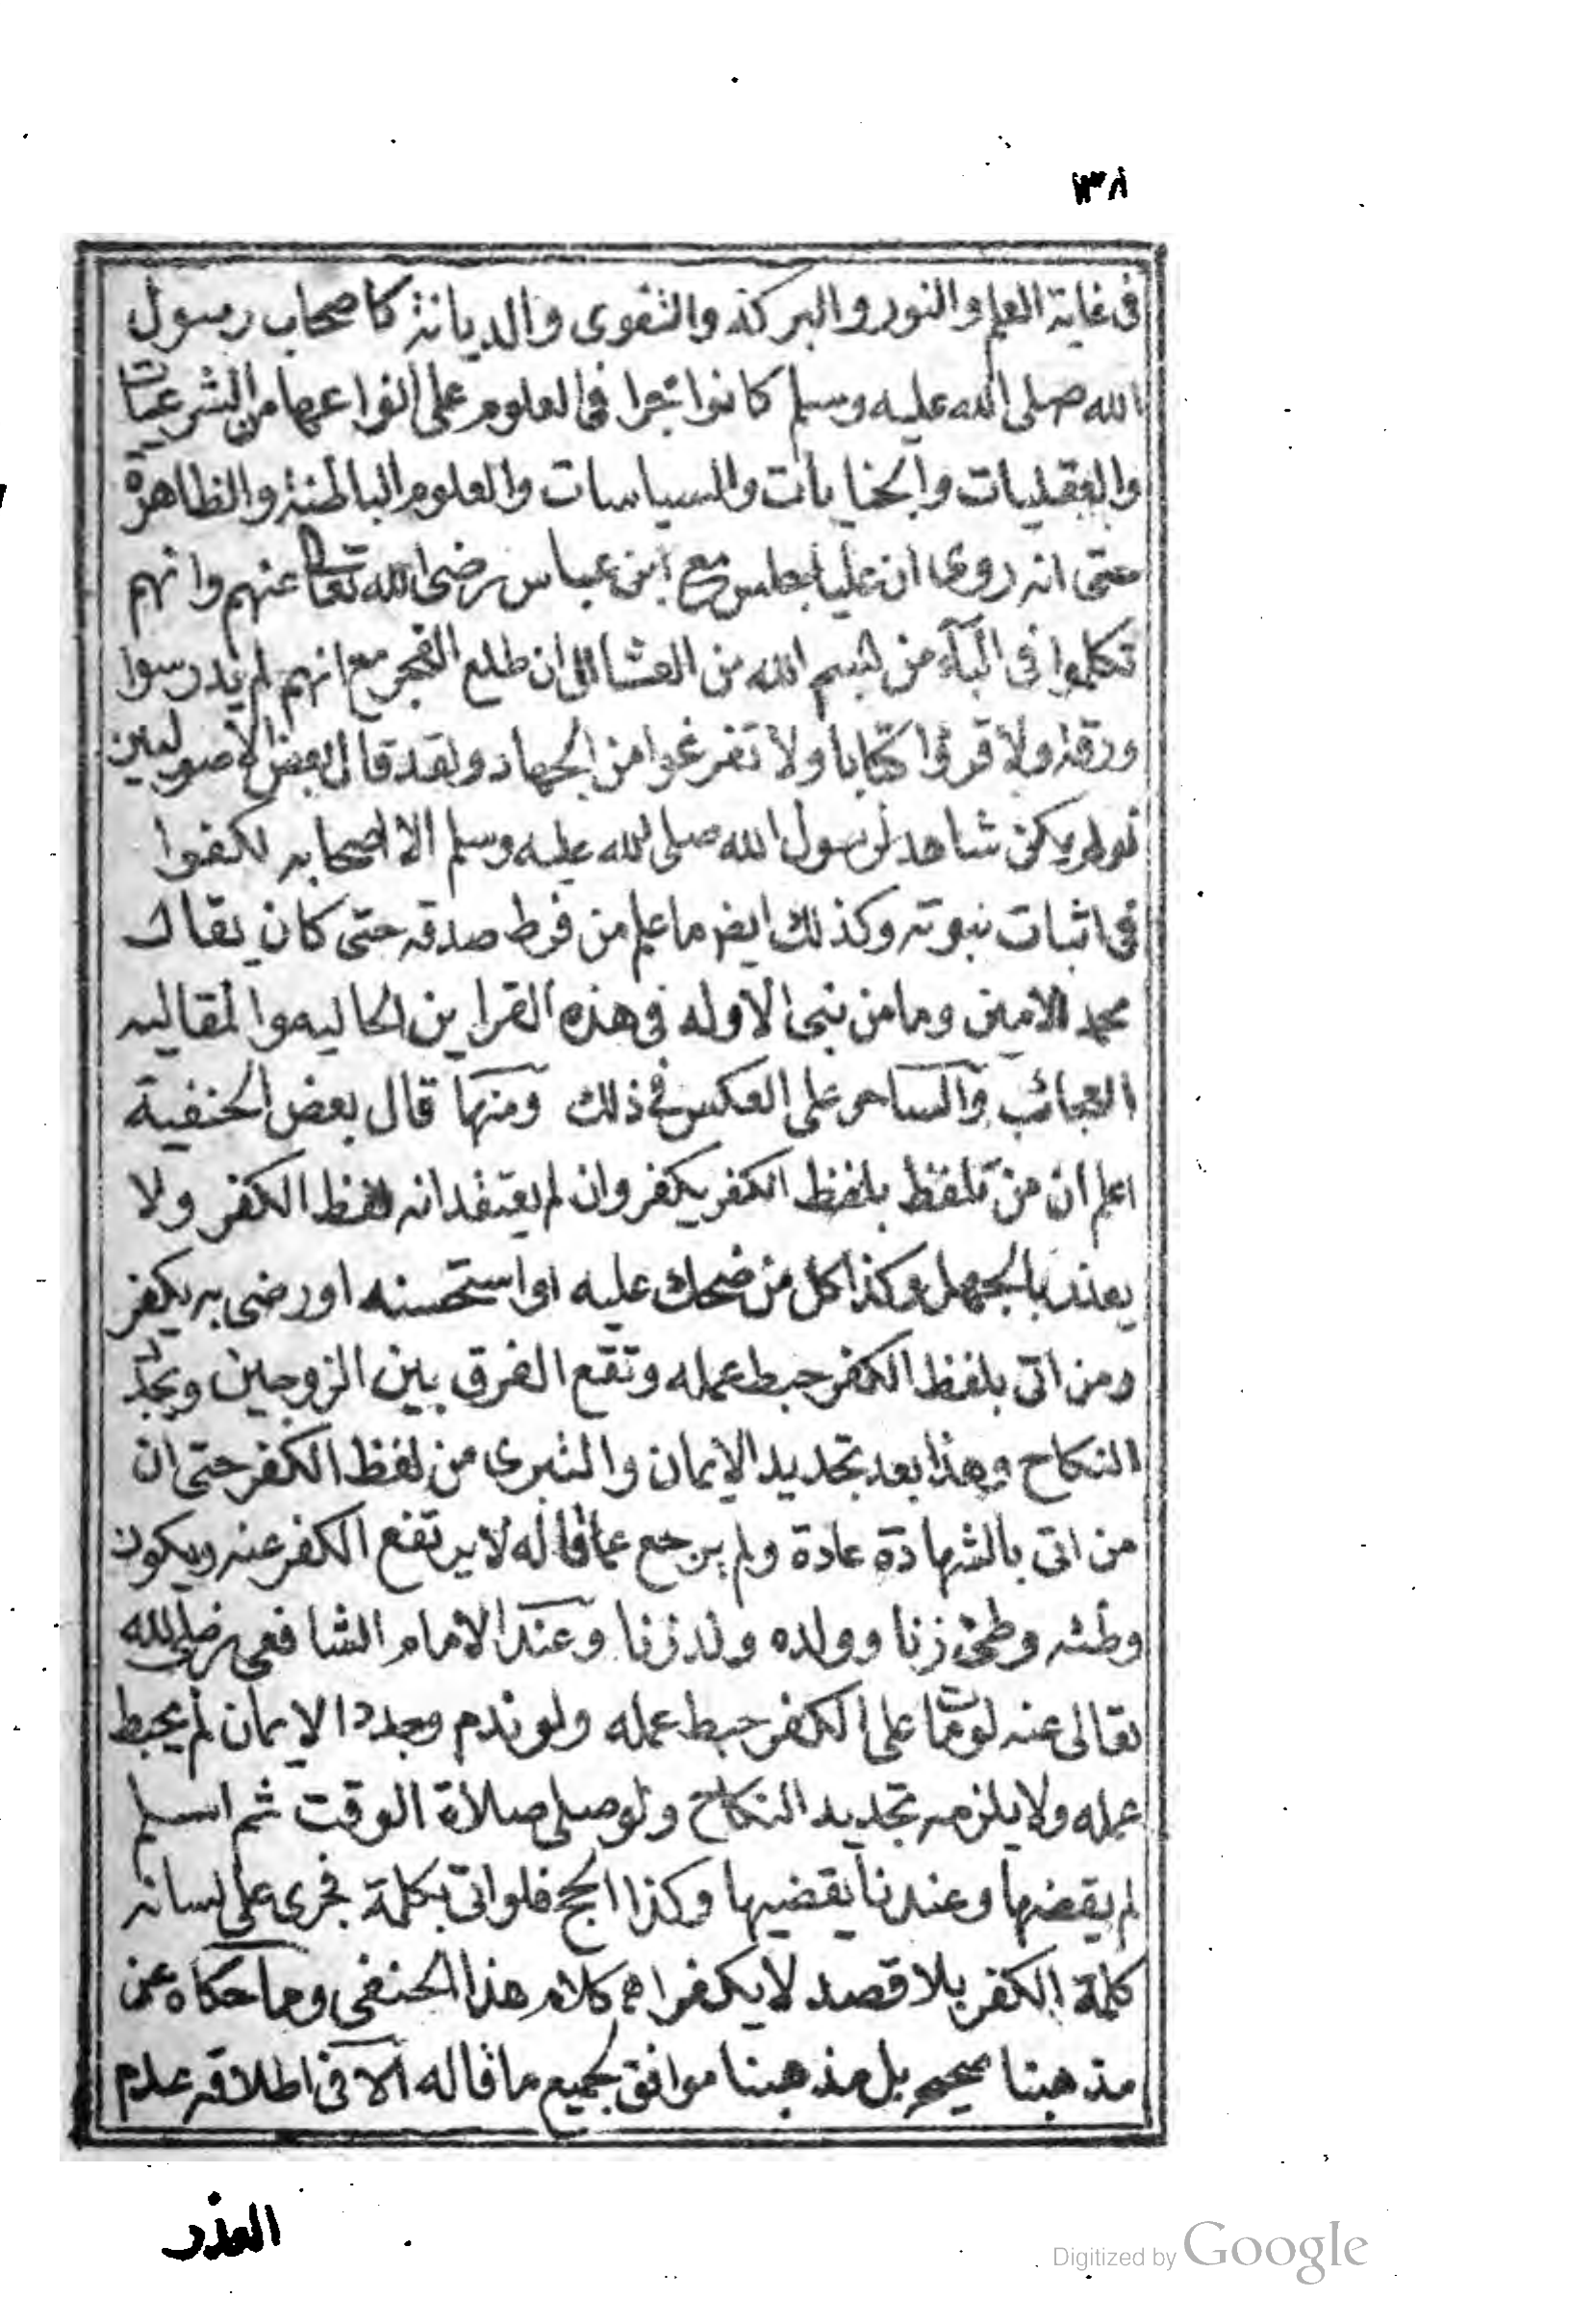 ١٣٨
فى غاية العلم والنور والبركة والتقوى والديانة كاصحاب رسول
الله صلى الله عليه وسلم كانوا بحرا فى العلوم على انواعها من الشرعيات
والعقليات والحسابات والسياسات والعلوم الباطنة والظاهرة
حتى انه روى ان عليا جلس مع ابن عباس رضى الله تعا عنهم وانهم
تكلموا فى الباء من بسم الله من العشا الى ان طلع الفجر مع انهم لم يدرسوا
ورقة ولا قرؤا كتابا ولا تفرغوا من الجهاد ولقد قال بعض الاصوليين
لو لم يكن شاهد لرسول الله صلى الله عليه وسلم الا اصحابه لكفوا
فى اثبات نبوته وكذلك ايضا ما علم من فرط صدقه حتى كان يقال
محمد الامين وما من نبى الا وله فى هذه القراين الحاليه والمقاليه
العجائب والساحر على العكس فى ذلك ومنها قال بعض الحنفية
اعلم ان من تلفظ بلفظ الكفر يكفر وان لم يعتقد انه لفظ الكفر ولا
يعذر بالجهل وكذا كل من ضحك عليه او استحسنه او رضى به يكفر
ومن اتى بلفظ الكفر حبط عمله وتقع الفرق بين الزوجين ويجدد
النكاح وهذا بعد تجديد الايمان والتبرى من لفظ الكفر حتى ان
من اتى بالشهادة عادة ولم يرجع عما قاله لا يرتفع الكفر عنه ويكون
وطئه وطئ زنا وولده ولد زنا وعند الامام الشافعى رضى الله
تعالى عنه لو مات على الكفر حبط عمله ولو ندم وجدد الايمان لم يحبط
عمله ولا يلزمه تجديد النكاح ولو صلى صلاة الوقت ثم اسلم
لم يقضها وعندنا يقضيها وكذا الحج فلو اتى بكلمة فجرى على لسانه
كلمة الكفر بلا قصد لا يكفر اه كلام هذا الحنفى وما حكاه عن
مذهبنا صحيح بل مذهبنا موافق بجميع ما قاله الا فى اطلاقه عدم
العذر
Digitized by Google